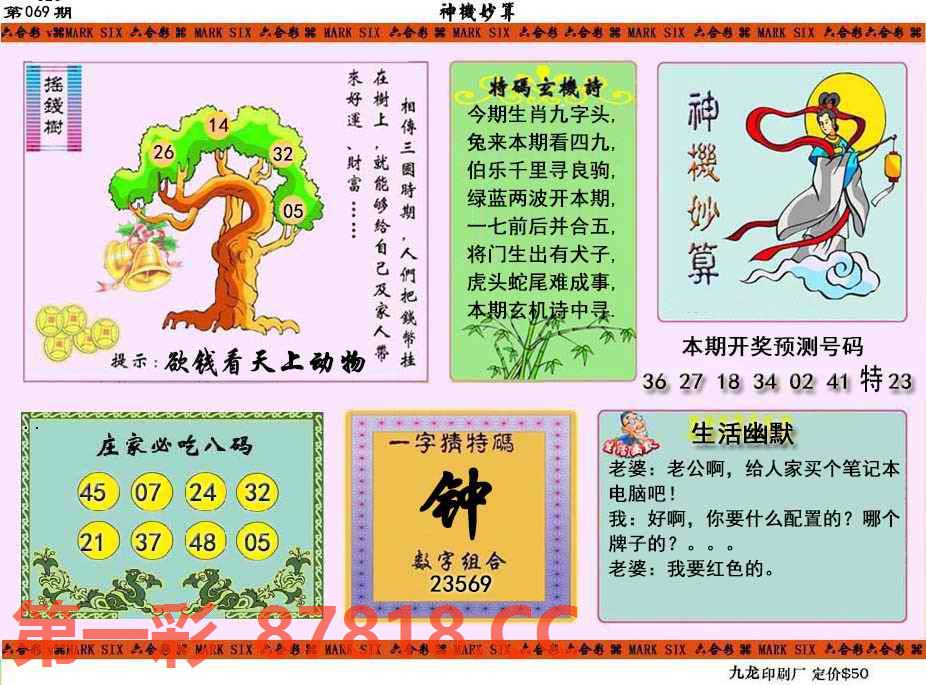 第069期
神機妙算
六合彩 MARK SIX 六合彩 MARK SIX 六合彩 MARK SIX 六合彩 MARK SIX 六合彩 MARK SIX 六合彩 MARK SIX 六合彩 MARK SIX 六合彩
搖錢樹
相傳三國時期，人們把錢幣挂
在樹上，就能够給自己及家人帶
來好運、財富……
14
26
32
05
提示：欲钱看天上动物
特碼玄機詩
今期生肖九字头,
兔来本期看四九,
伯乐千里寻良驹,
绿蓝两波开本期,
一七前后并合五,
将门生出有犬子,
虎头蛇尾难成事,
本期玄机诗中寻.
神機妙算
本期开奖预测号码
36 27 18 34 02 41 特23
庄家必吃八码
45 07 24 32
21 37 48 05
一字猜特碼
钟
数字组合
23569
生活幽默
生活幽默
老婆：老公啊，给人家买个笔记本
电脑吧！
我：好啊，你要什么配置的？哪个
牌子的？。。。
老婆：我要红色的。
第一彩 87818.CC
六合彩 MARK SIX 六合彩 MARK SIX 六合彩 MARK SIX 六合彩 MARK SIX 六合彩 MARK SIX 六合彩 MARK SIX 六合彩 MARK SIX 六合彩
九龙印刷厂 定价$50